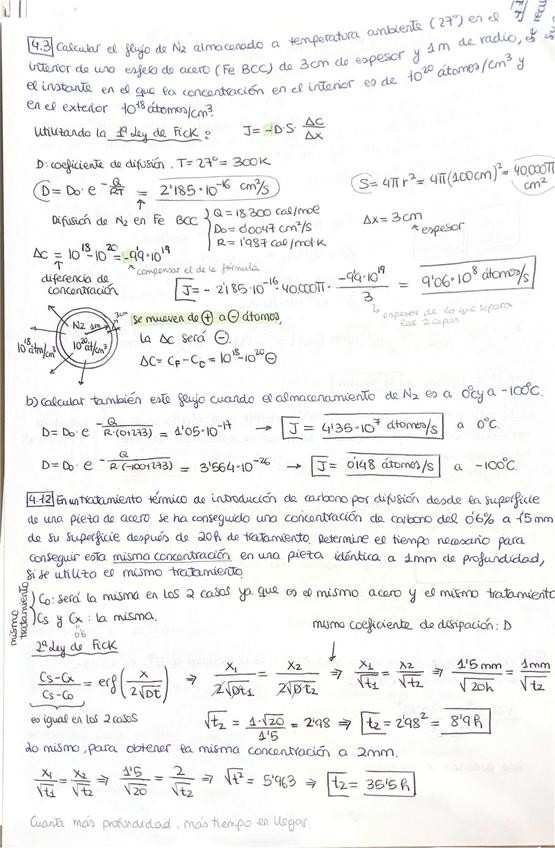 4.3 Calcular el flujo de N2 almacenado a temperatura ambiente (27º) en el
interior de una esfera de acero (Fe BCC) de 3cm de espesor y 1m de radio, es
el instante en el que la concentración en el interior es de 10^20 átomos/cm³ y
en el exterior 10^18 átomos/cm³.
Utilizando la 1ª Ley de Fick: J = -D·S · ΔC/Δx
D: coeficiente de difusión. T = 27º = 300K
D = D0 · e^(-Q/RT) = 2'185·10^-16 cm²/s
S = 4πr² = 4π(100cm)² = 40,000π cm²
Difusión de N2 en Fe BCC { Q = 18300 cal/mol
D0 = 0'0047 cm²/s
R = 1'987 cal/mol K
Δx = 3cm
espesor
ΔC = 10^18 - 10^20 = -9'9·10^19
compensar el de la fórmula
diferencia de
concentración
J = - 2'185·10^-16 · 40000π · -9'9·10^19/3 = 9'06·10^8 átomos/s
espesor de lo que separa
las 2 capas
3cm
N2 1m
10^18 atm/cm³
10^20 at/cm³
se mueven de + a - átomos,
la ΔC será -.
ΔC = CF - C0 = 10^18 - 10^20 -
b) Calcular también este flujo cuando el almacenamiento de N2 es a 0ºC y a -100ºC.
D = D0 · e^(-Q/R·(0+273)) = 1'05·10^-17 → J = 4'35·10^7 átomos/s a 0ºC.
D = D0 · e^(-Q/R·(-100+273)) = 3'564·10^-26 → J = 0'148 átomos/s a -100ºC.
4.12 En un tratamiento térmico de introducción de carbono por difusión desde la superficie
de una pieza de acero se ha conseguido una concentración de carbono del 0'6% a 1'5mm
de su superficie después de 20h de tratamiento. Determine el tiempo necesario para
conseguir esta misma concentración en una pieza idéntica a 1mm de profundidad,
si se utiliza el mismo tratamiento.
mismo tratamiento
C0: será la misma en los 2 casos ya que es el mismo acero y el mismo tratamiento
Cs y Cx: la misma.
0'6
mismo coeficiente de disipación: D
2ª Ley de Fick
Cs-Cx/Cs-C0 = erf(x/2√Dt) ⇒ x1/2√Dt1 = x2/2√Dt2 ⇒ x1/√t1 = x2/√t2 ⇒ 1'5mm/√20h = 1mm/√t2
es igual en los 2 casos
√t2 = 1·√20/1'5 = 2'98 ⇒ t2 = 2'98² = 8'9h
Lo mismo, para obtener la misma concentración a 2mm.
x1/√t1 = x2/√t2 ⇒ 1'5/√20 = 2/√t2 ⇒ √t² = 5'963 ⇒ t2 = 35'5h
Cuanta más profundidad, más tiempo en llegar.